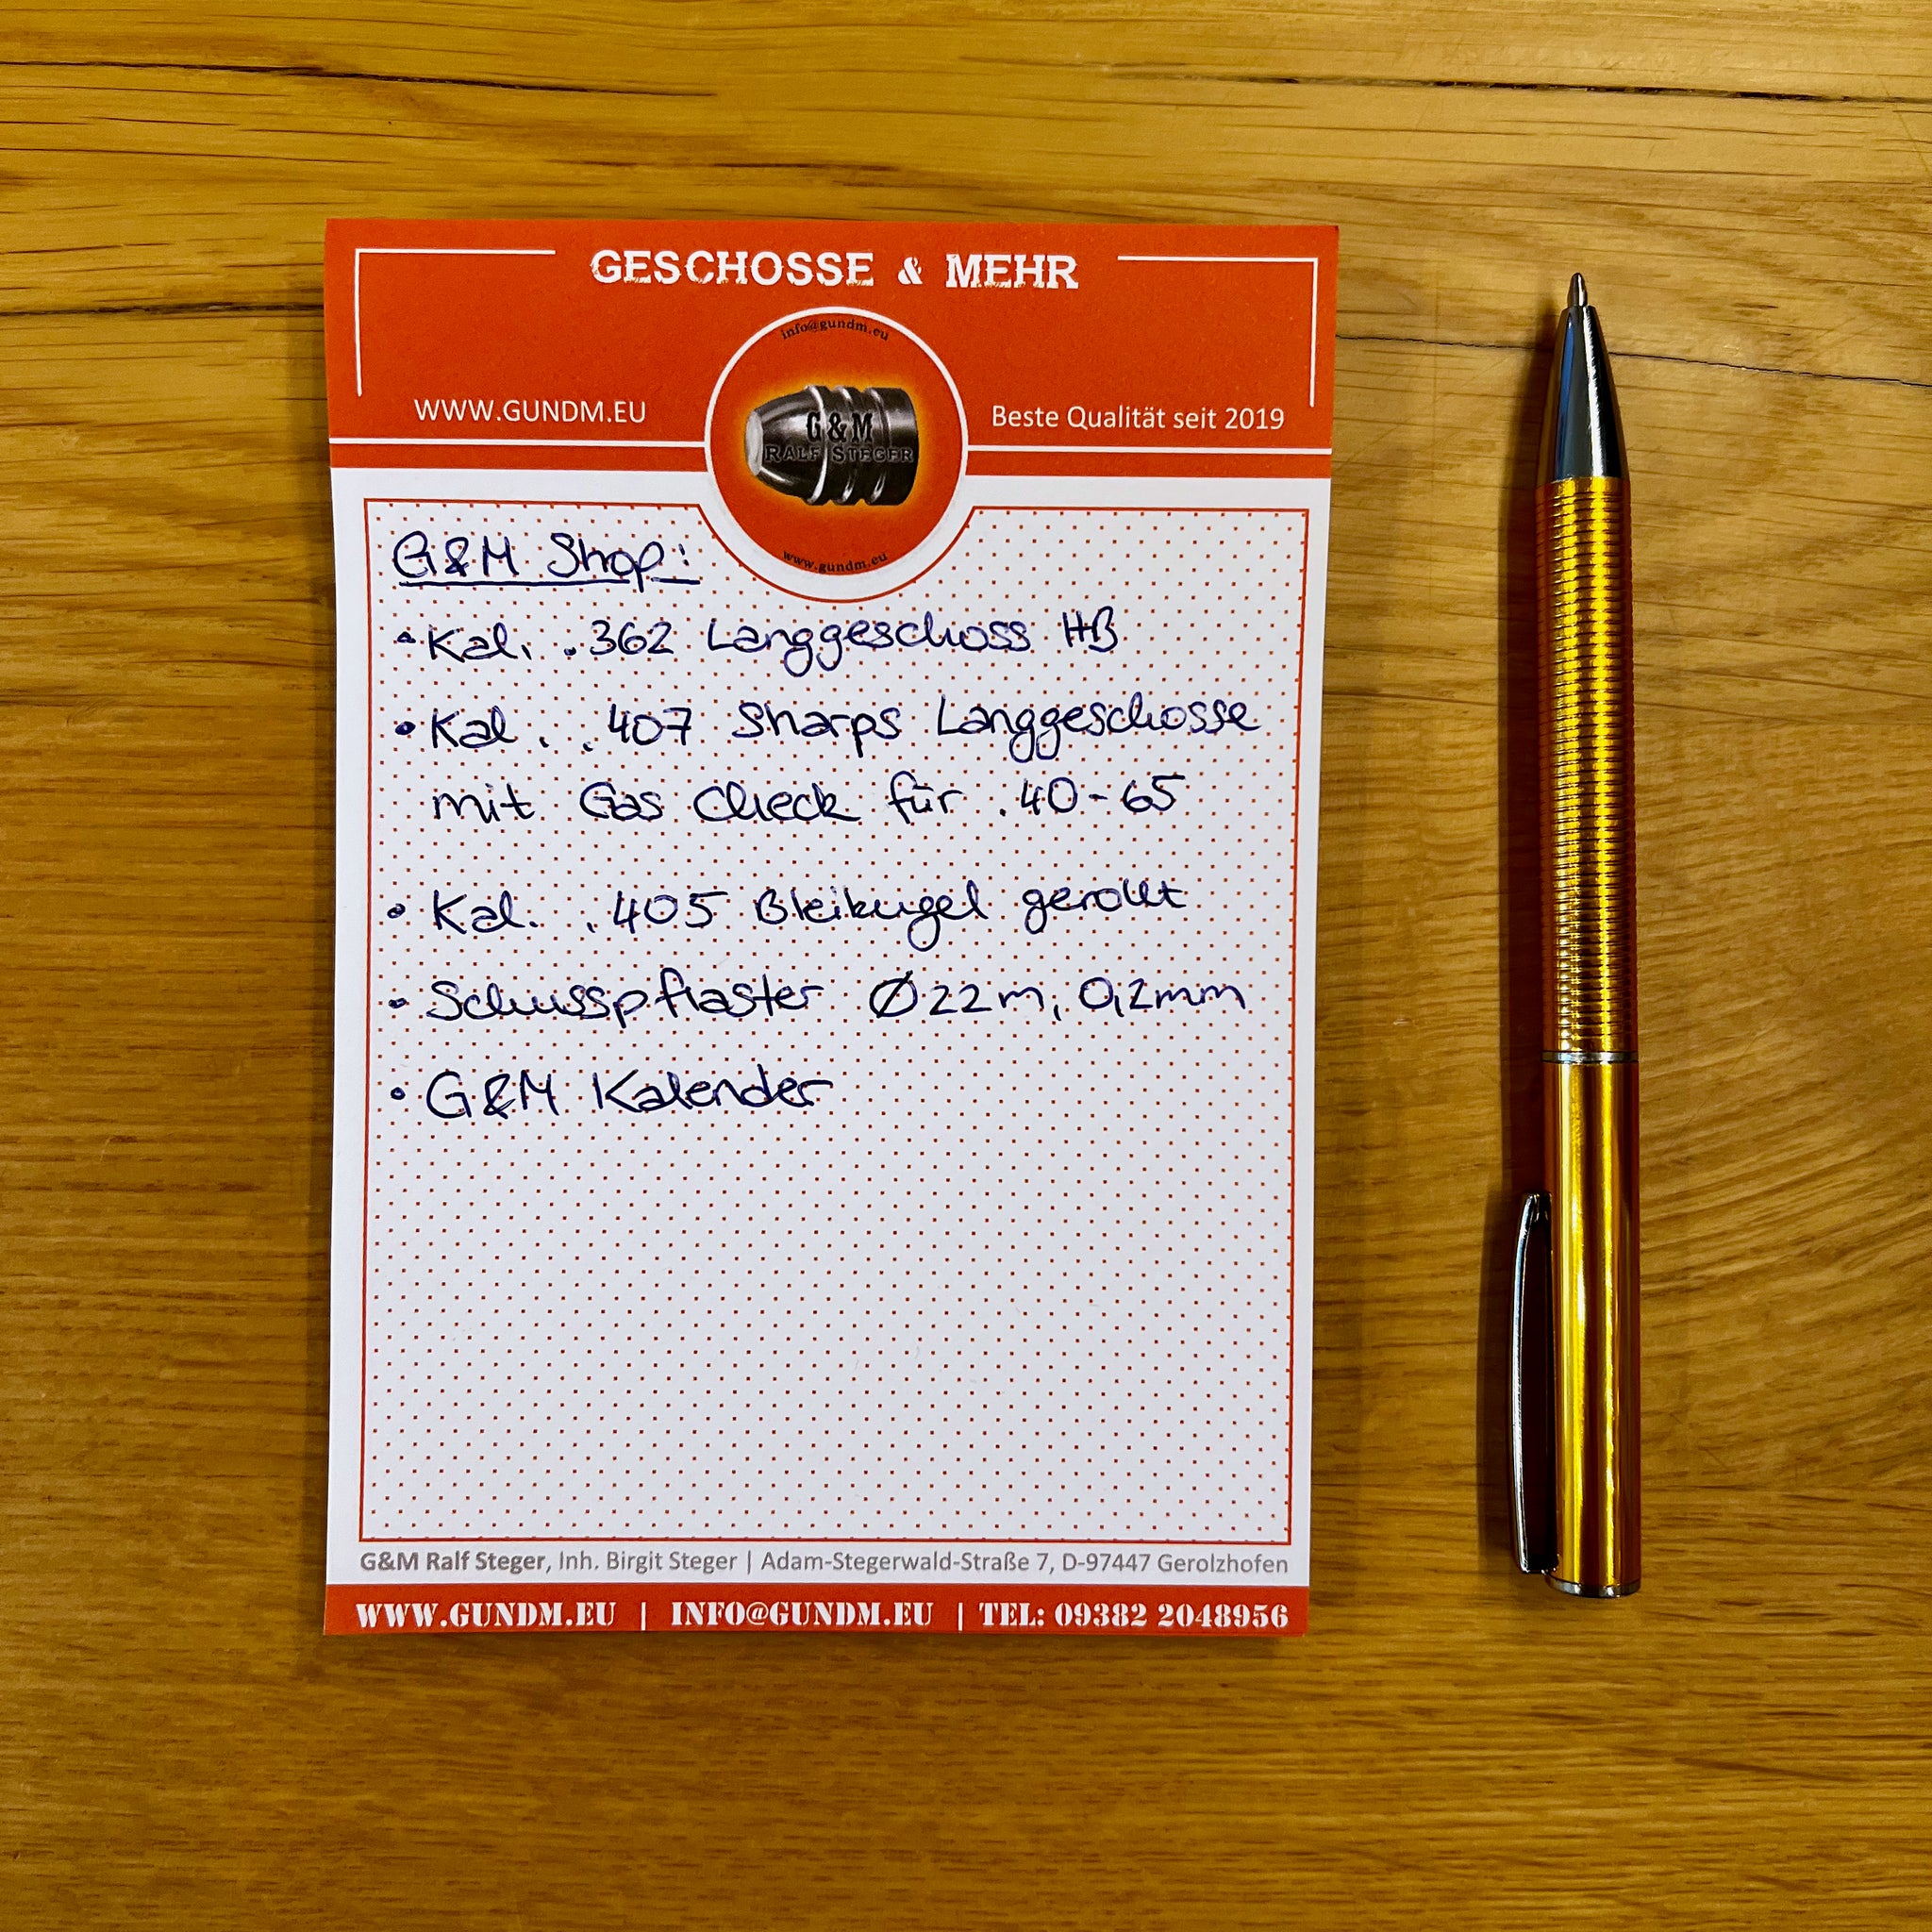 GESCHOSSE & MEHR
info@gundm.eu
WWW.GUNDM.EU
Beste Qualität seit 2019
G&M
RALF STEGER
www.gundm.eu
G&M Shop:
• Kal. .362 Langgeschoss HB
• Kal. .407 Sharps Langgeschosse
mit Gas Check für .40-65
• Kal. .405 Bleikugel gerollt
• Schusspflaster Ø22m, 0,2mm
• G&M Kalender
G&M Ralf Steger, Inh. Birgit Steger | Adam-Stegerwald-Straße 7, D-97447 Gerolzhofen
WWW.GUNDM.EU | INFO@GUNDM.EU | TEL: 09382 2048956